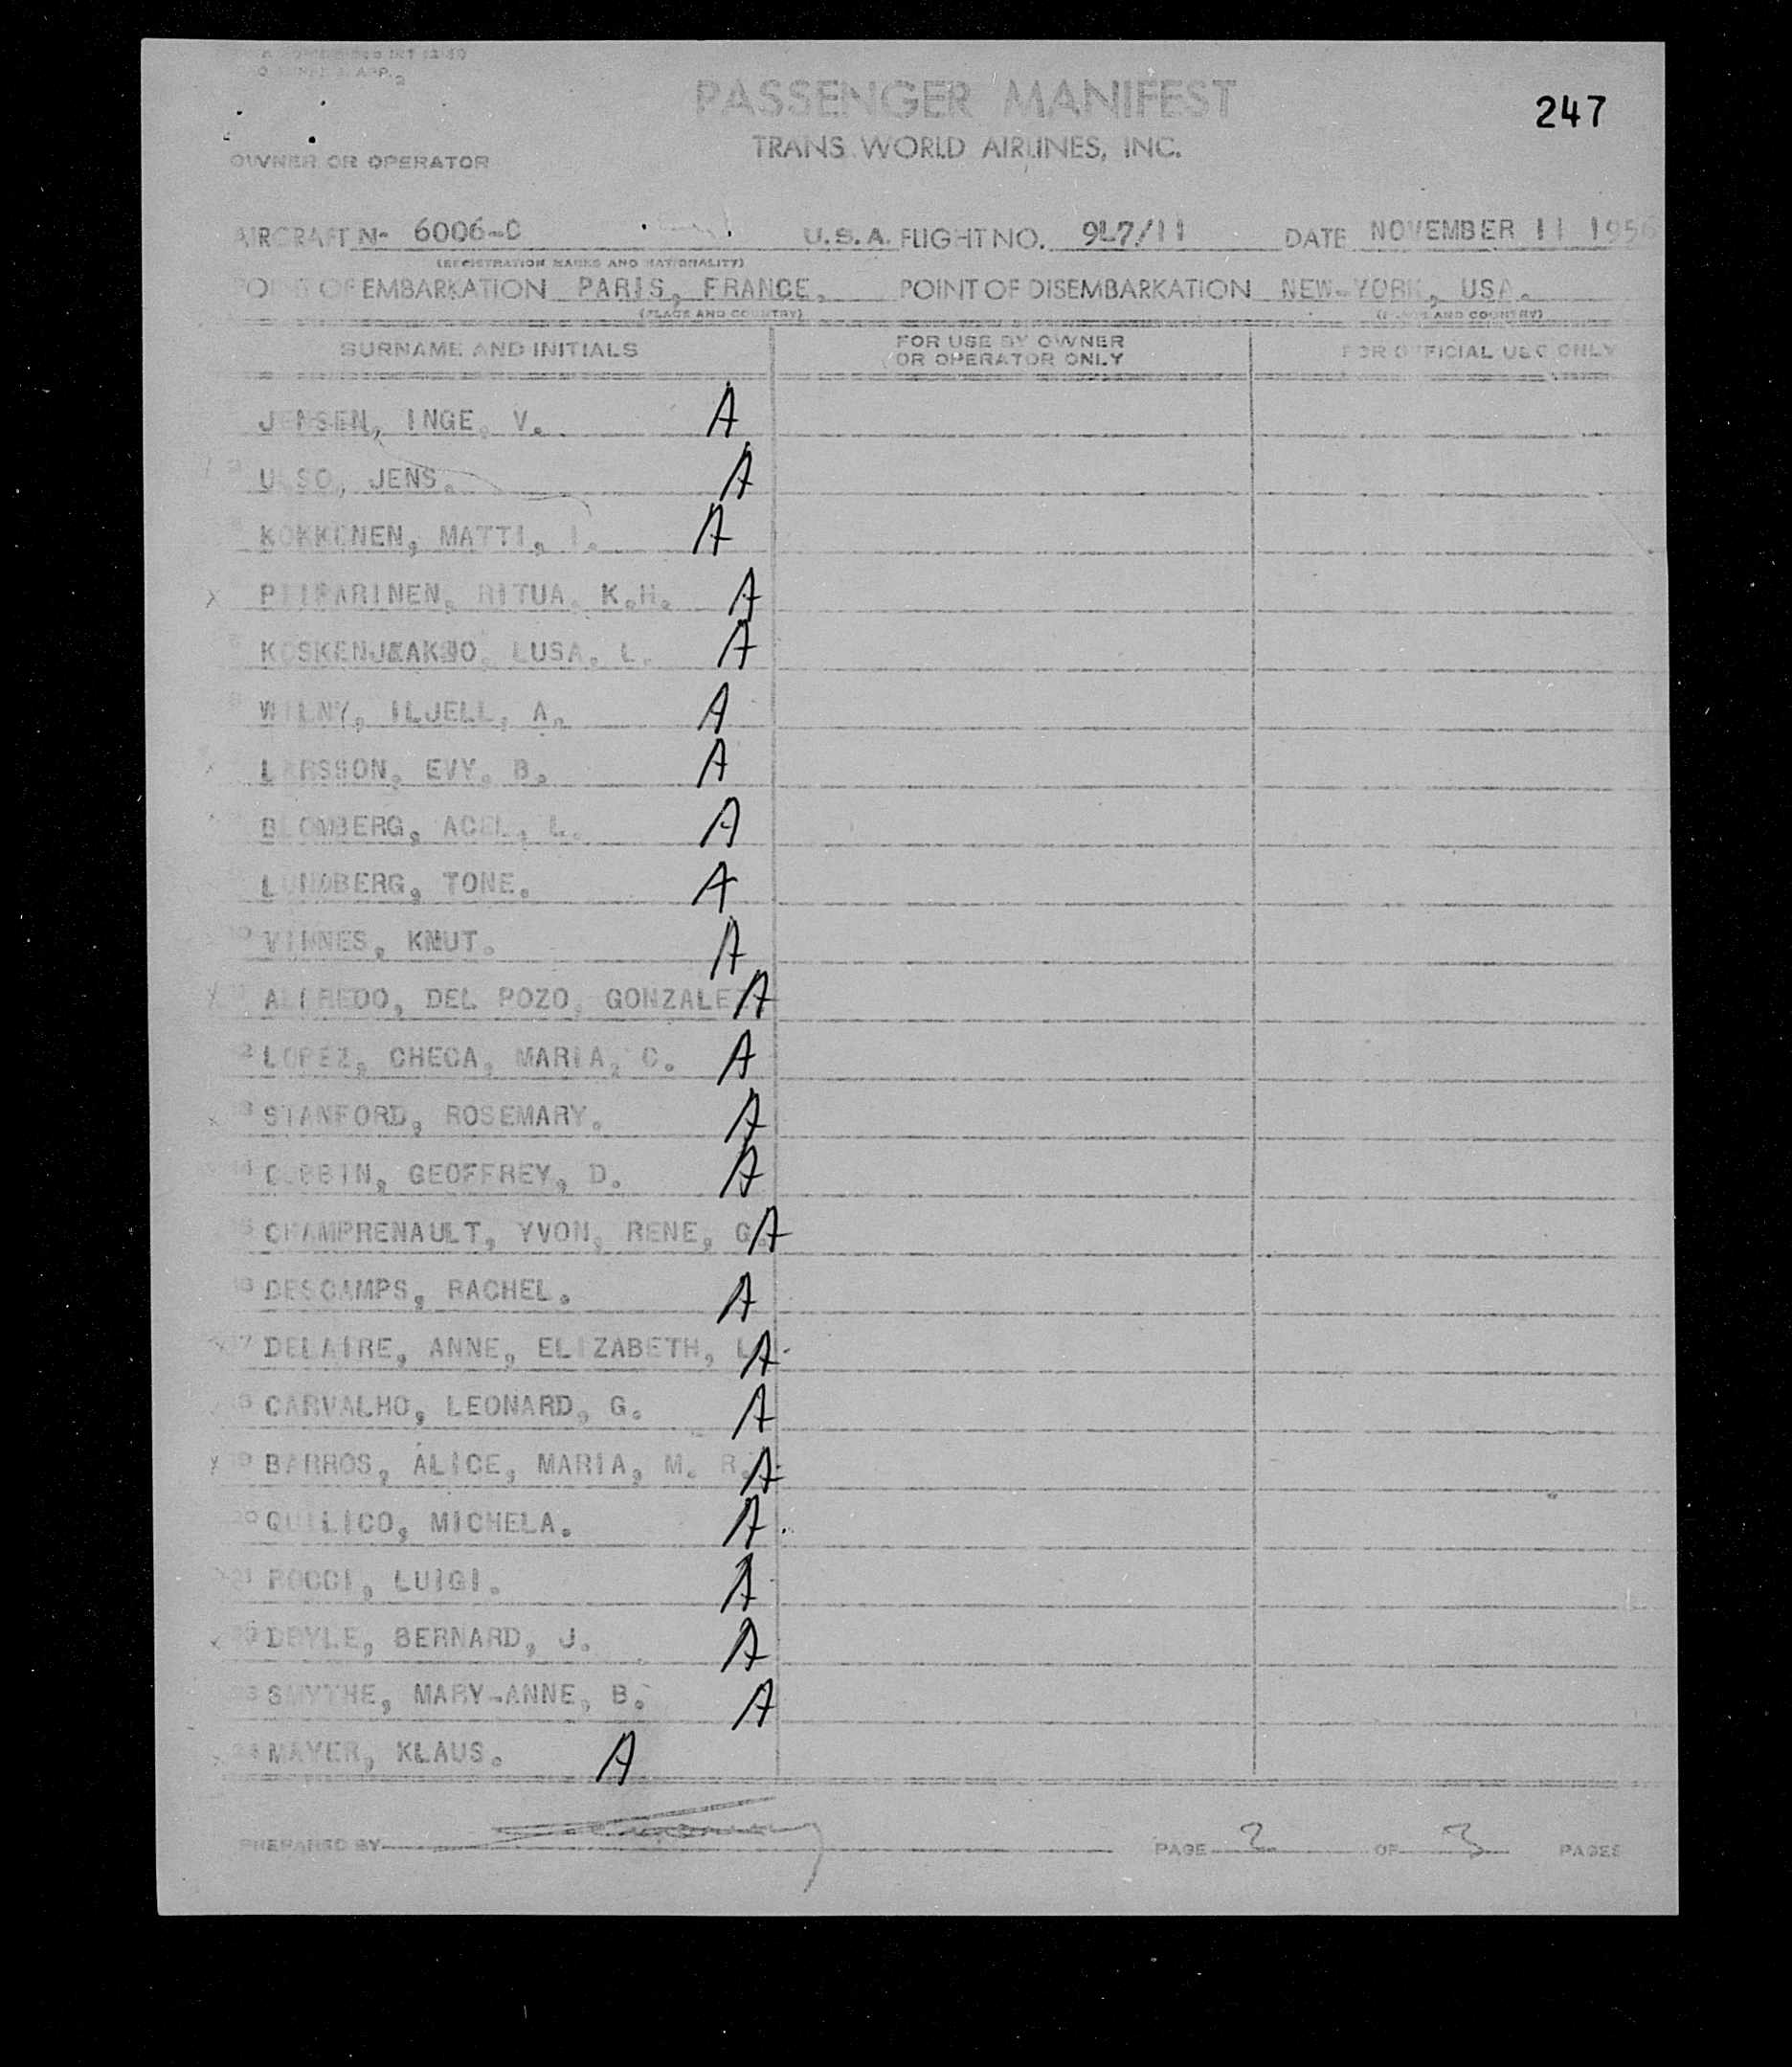 PASSENGER MANIFEST
247
TRANS WORLD AIRLINES, INC.
OWNER OR OPERATOR
AIRCRAFT N- 6006-C U.S.A. FLIGHT NO. 9L7/11 DATE NOVEMBER 11 1956
(REGISTRATION MARKS AND NATIONALITY)
POINT OF EMBARKATION PARIS, FRANCE. POINT OF DISEMBARKATION NEW-YORK, USA.
(PLACE AND COUNTRY) (PLACE AND COUNTRY)
SURNAME AND INITIALS FOR USE BY OWNER OR OPERATOR ONLY FOR OFFICIAL USE ONLY
JENSEN, INGE, V. A
JENS. A
KOKKONEN, MATTI, I. A
X RITUA, K.H. A
LUSA, L. A
WILNY, ILJELL, A. A
LARSSON, EVY. B. A
BLOMBERG, ACEL, L. A
LUNDBERG, TONE. A
10 VINNES, KNUT. A
ALFREDO, DEL POZO, GONZALEZ A
12 LOPEZ, CHECA, MARIA, C. A
13 STANFORD, ROSEMARY. A
14 GEOFFREY, D. A
15 CHAMPRENAULT, YVON, RENE, G. A
16 DESCAMPS, RACHEL. A
17 DELAIRE, ANNE, ELIZABETH, L A
18 CARVALHO, LEONARD, G. A
19 BARROS, ALICE, MARIA, M. R. A
20 QUILICO, MICHELA. A
21 ROCCI, LUIGI. A
22 BERNARD, J. A
23 SMYTHE, MARY-ANNE, B. A
24 MAYER, KLAUS. A
PREPARED BY PAGE 2 OF 3 PAGES